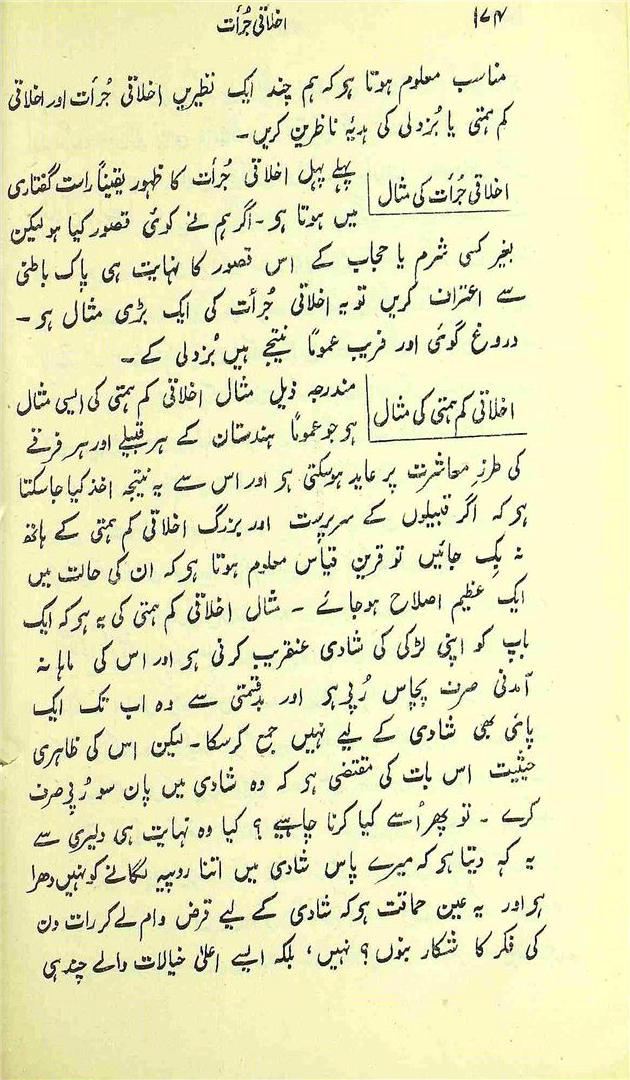 ۱۷۴ اخلاقی جُرأت
مناسب معلوم ہوتا ہو کہ ہم چند ایک نظیریں اخلاقی جُرأت اور اخلاقی
کم ہمتی یا بُزدلی کی ہدیۂ ناظرین کریں۔
اخلاقی جُرأت کی مثال
پہلے پہل اخلاقی جُرأت کا ظہور یقیناً راست گفتاری
میں ہوتا ہو۔ اگر ہم نے کوئی قصور کیا ہو لیکن
بغیر کسی شرم یا حجاب کے اس قصور کا نہایت ہی پاک باطنی
سے اعتراف کریں تو یہ اخلاقی جُرأت کی ایک بڑی مثال ہو۔
دروغ گوئی اور فریب عموماً نتیجے ہیں بُزدلی کے۔
اخلاقی کم ہمتی کی مثال
مندرجہ ذیل مثال اخلاقی کم ہمتی کی ایسی مثال
ہو جو عموماً ہندستان کے ہر قبیلے اور ہر فرقے
کی طرزِ معاشرت پر عاید ہوسکتی ہو اور اس سے یہ نتیجہ اخذ کیا جاسکتا
ہو کہ اگر قبیلوں کے سرپرست اور بزرگ اخلاقی کم ہمتی کے ہاتھ
نہ بِک جائیں تو قرینِ قیاس معلوم ہوتا ہو کہ ان کی حالت میں
ایک عظیم اصلاح ہوجائے۔ مثال اخلاقی کم ہمتی کی یہ ہو کہ ایک
باپ کو اپنی لڑکی کی شادی عنقریب کرنی ہو اور اس کی ماہانہ
آمدنی صرف پچاس رُپی ہو اور بدقسمتی سے وہ اب تک ایک
پائی بھی شادی کے لیے نہیں جمع کرسکا۔ لیکن اس کی ظاہری
حیثیت اس بات کی مقتضی ہو کہ وہ شادی میں پان سو رُپی صرف
کرے۔ تو پھر اُسے کیا کرنا چاہیے؟ کیا وہ نہایت ہی دلیری سے
یہ کہہ دیتا ہو کہ میرے پاس شادی میں اتنا روپیہ لگانے کو نہیں دھرا
ہو اور یہ عین حماقت ہو کہ شادی کے لیے قرض وام لے کر رات دن
کی فکر کا شکار بنوں؟ نہیں، بلکہ ایسے اعلیٰ خیالات والے چند ہی